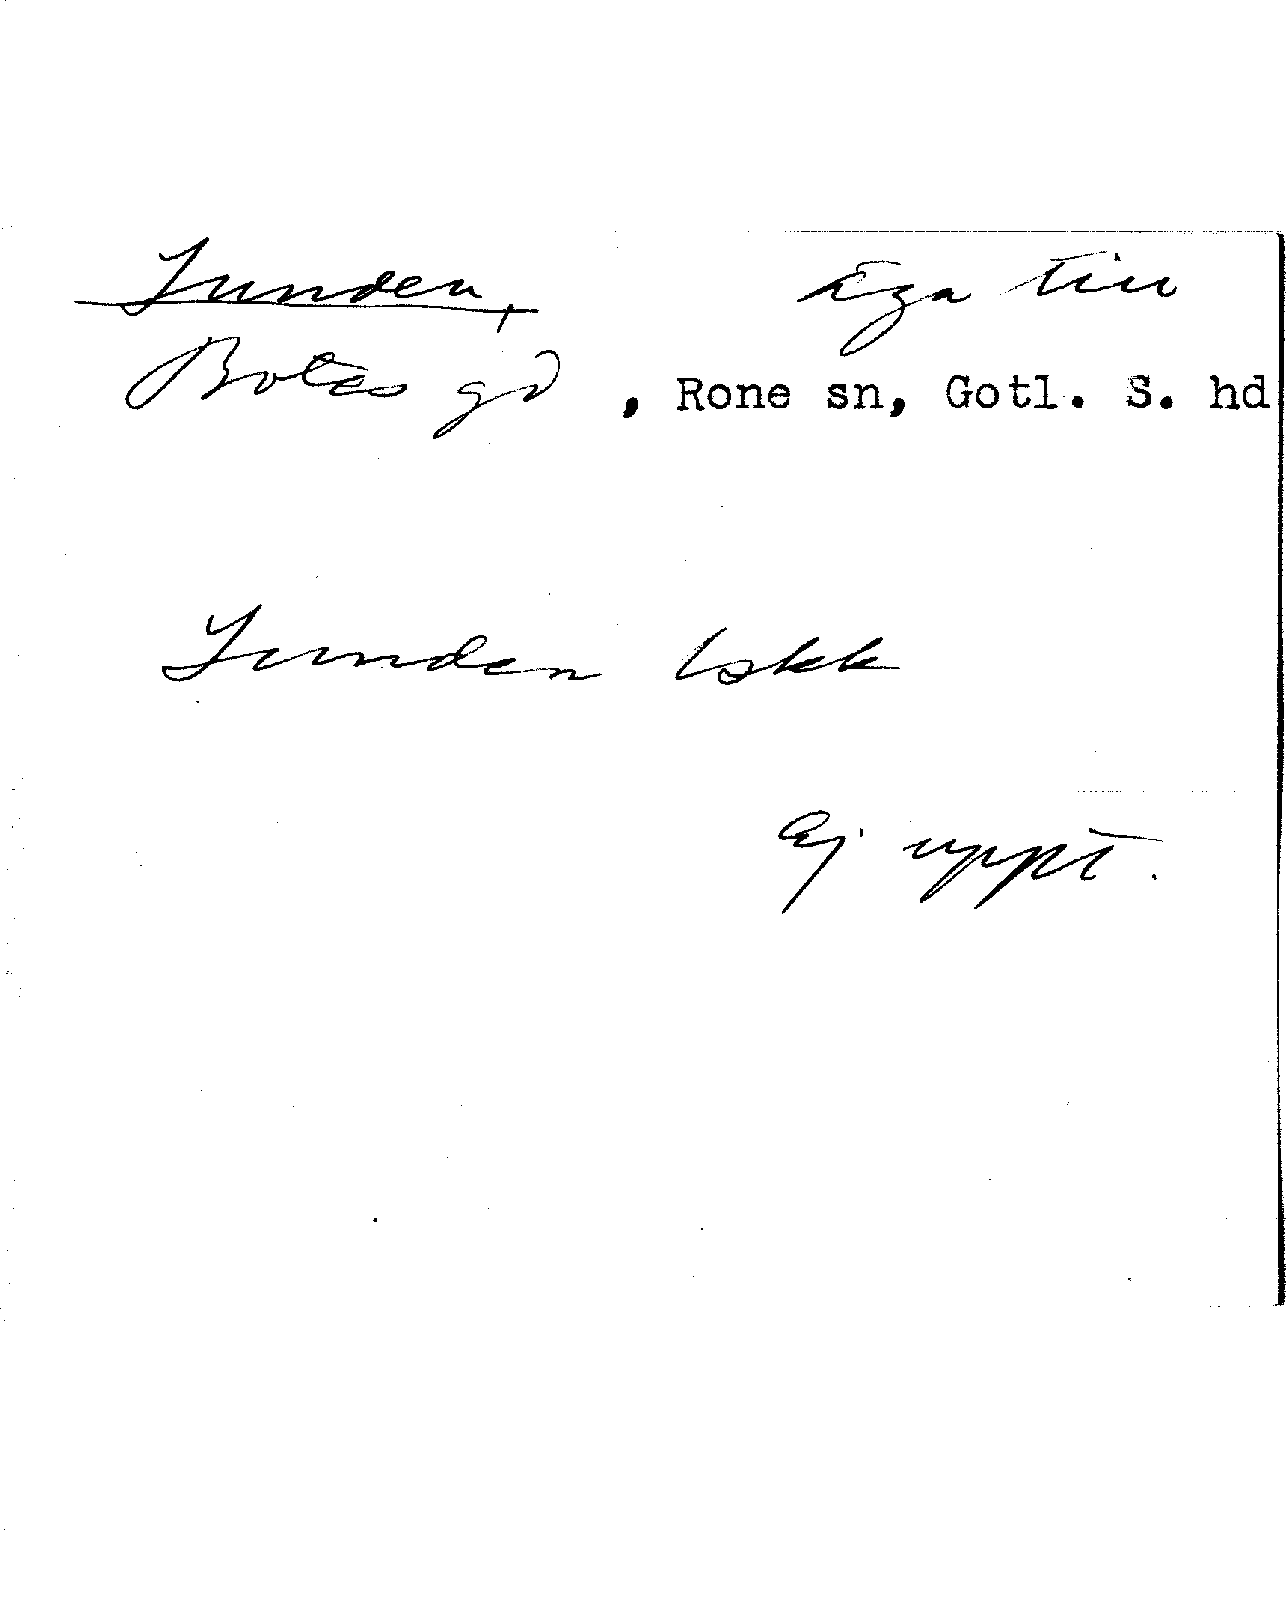 Lunden, Äga till
Botes gd, Rone sn, Gotl. S. hd
Lunden Lskk
Ej uppt.